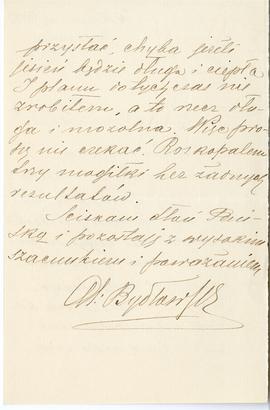 przystać, chyba jeśli
jesień będzie długa i ciepła
I planu dotychczas nie
zrobiłem, a to rzecz dłu-
ga i mozolna. Więc pro-
szę nie czekać. Rozkopałem
trzy mogiłki bez żadnych
rezultatów.
Ściskam dłoń Pań-
ską i pozostaję z wysokim
szacunkiem i poważaniem